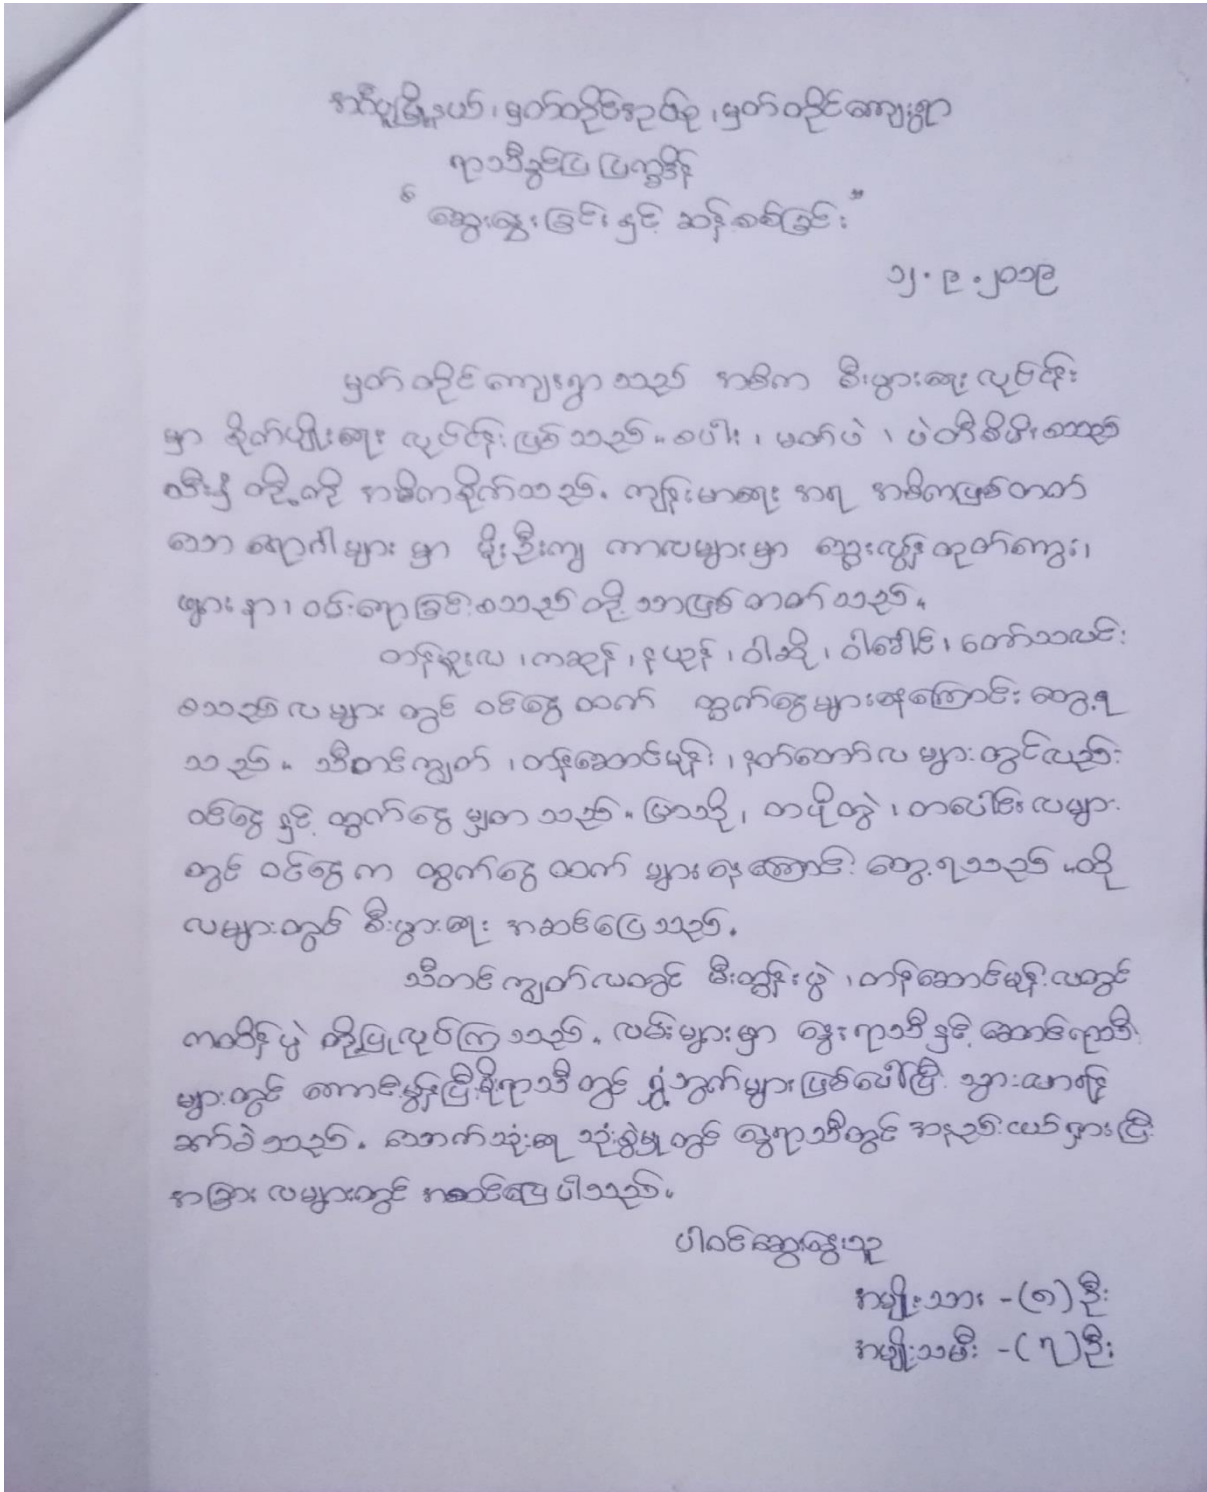 အင်္ဂပူမြို့နယ်၊ မှတ်တိုင်အုပ်စု၊ မှတ်တိုင်ကျေးရွာ
ရာသီခွင်ပြ ပြက္ခဒိန်
“ဆွေးနွေးခြင်းနှင့် ဆန်းစစ်ခြင်း”
၁၂.၉.၂၀၁၉
မှတ်တိုင်ကျေးရွာသည် အဓိက စီးပွားရေးလုပ်ငန်း
မှာ စိုက်ပျိုးရေး လုပ်ငန်းဖြစ်သည်။ စပါး၊ မတ်ပဲ၊ ပဲတီစိမ်းစသည့်
သီးနှံ တို့ကို အဓိကစိုက်သည်။ ကျန်းမာရေး အရ အဓိကဖြစ်တတ်
သော ရောဂါများ မှာ မိုးဦးကျ ကာလများမှာ သွေးလွန်တုတ်ကွေး၊
ဖျားနာ၊ ဝမ်းရောခြင်းစသည် တို့သာဖြစ်တတ်သည်။
တန်ခူးလ၊ ကဆုန်၊ နယုန်၊ ဝါဆို၊ ဝါခေါင်၊ တော်သလင်း
စသည့်လများတွင် ဝင်ငွေထက် ထွက်ငွေများနေကြောင်း တွေ့ရ
သည်။ သီတင်းကျွတ်၊ တန်ဆောင်မုန်း၊ နတ်တော်လများတွင်လည်း
ဝင်ငွေနှင့် ထွက်ငွေ မျှတသည်။ ပြာသို၊ တပို့တွဲ၊ တပေါင်းလများ
တွင် ဝင်ငွေက ထွက်ငွေထက် များနေကြောင်း တွေ့ရသည်။ ထို
လများတွင် စီးပွားရေး အဆင်ပြေသည်။
သီတင်းကျွတ်လတွင် မီးထွန်းပွဲ၊ တန်ဆောင်မုန်းလတွင်
ကထိန်ပွဲ တို့ပြုလုပ်ကြသည်။ လမ်းများမှာ နွေရာသီနှင့် ဆောင်းရာသီ
များတွင် ကောင်းမွန်ပြီး မိုးရာသီတွင် ရွှံ့ဘွက်များဖြစ်ပေါ်ပြီး သွားလာရန်
ခက်ခဲသည်။ သောက်သုံးရေ သုံးစွဲမှုတွင် နွေရာသီတွင် အနည်းငယ်ရှားပြီး
အခြားလများတွင် အဆင်ပြေပါသည်။
ပါဝင်ဆွေးနွေးသူ
အမျိုးသား -(၈)ဦး
အမျိုးသမီး -(၇)ဦး